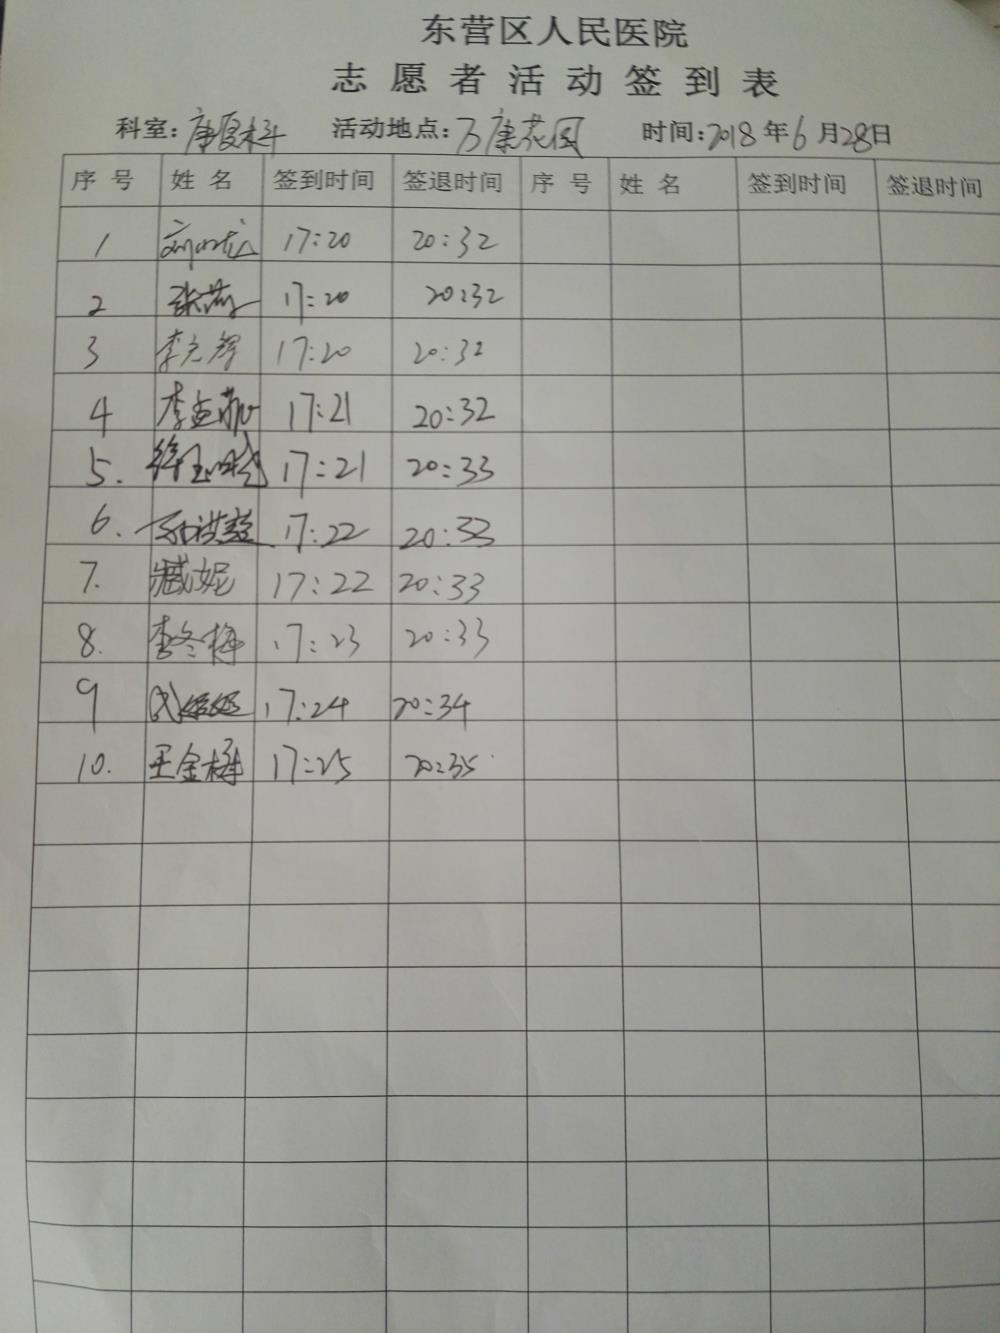 东营区人民医院
志愿者活动签到表
科室:康复科 活动地点:万康花园 时间:2018年6月28日
序号 姓名 签到时间 签退时间 序号 姓名 签到时间 签退时间
1 17:20 20:32
2 17:20 20:32
3 李元辉 17:20 20:32
4 李孟 17:21 20:32
5. 徐玉晓 17:21 20:33
6. 17:22 20:33
7. 臧妮 17:22 20:33
8. 李冬梅 17:23 20:33
9 17:24 20:34
10. 王金梅 17:25 20:35